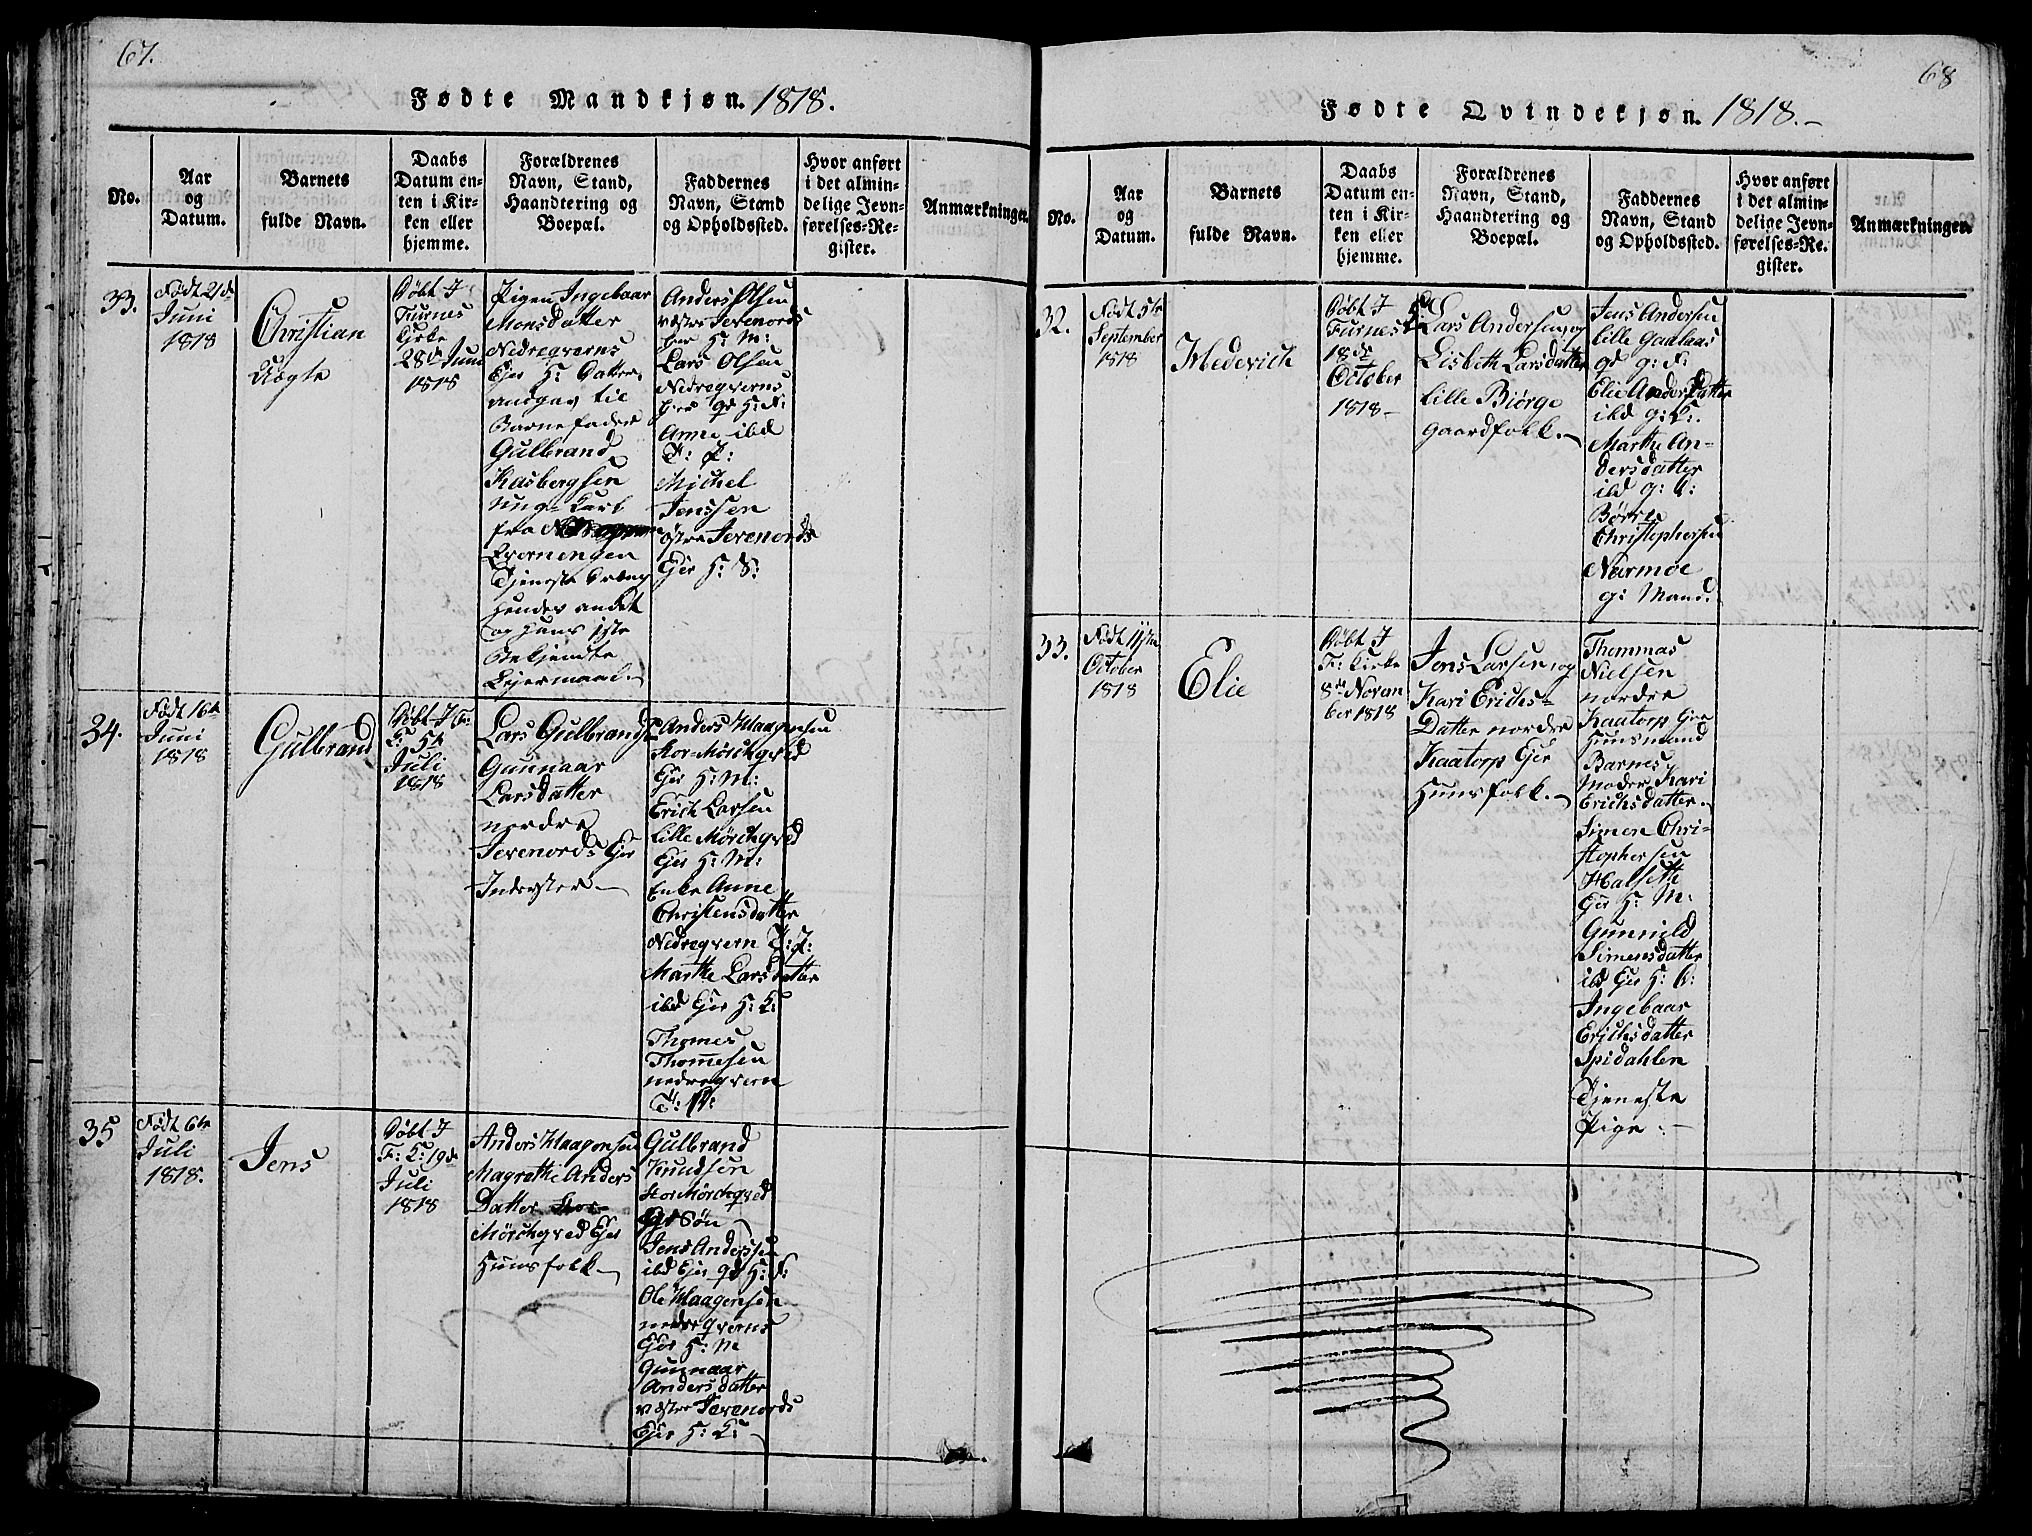 67.
Fødte Mandkjøn. 1818.
No.
Aar
og
Datum.
Barnets
fulde Navn.
Daabs
Datum en-
ten i Kir-
ken eller
hjemme.
Forældrenes
Navn, Stand,
Haandtering og
Boepæl.
Faddernes
Navn, Stand
og Opholdssted.
Hvor anført
i det almin-
delige Jevn-
førelses-Re-
gister.
Anmærkninger.
33.
Født 21de
Juni
1818
Christian
Uægte
Døbt I
Furnes
Kirke
28de Juni
1818
Pigen Ingebaar
Monsdatter
Nedreqverns
Ejer H: Datter
angav til
Barnefader
Gulbrand
Kasbergsen
Ung-Karl
fra
Qverningen
Tjeneste Dræng
Hendes andet
og Hans 1ste
Bekjendte
Lejermaal.
Anders Olsen
vestre Jevenords
Ejer H: M:
Lars Olsen
Nedreqverns
Ejer gd H: K:
Anne ibd
T: P:
Michel
Jenssen
østre Jevenords
Ejer H: S:
34.
Født 16de
Juni
1818
Gulbrand
Døbt I F:
K: 5te
Juli
1818
Lars Gulbrands
Gunnaar
Larsdatter
nordre
Jevenords Ejer
Inderster
Anders Haagensen
Stor Mörchqved
Ejer H: M:
Erich Larsen
Lille Mörchqved
Ejer H: M:
Enke Anne
Christensdatter
Nedreqvern T: P:
Marthe Larsdatter
ibd Ejer H: K:
Thomes
Thommesen
nedreqvern
35
Født 6te
Juli
1818.
Jens
Døbt I
F: K: 19de
Juli
1818
Anders Haagensen
Magrethe Anders
Datter Stor
Mörchqved Ejer
Huusfolk
Gulbrand
Knudsen
Stor Mörchqved
gd Søn
Jens Anderssen
ibd Ejer gd H: K:
Ole Haagensen
nedreqverns
Ejer H: M
Gunnaar
Andersdatter
vestre Jevenords
Ejer H: K:
68
Fødte Qvindekjøn. 1818.
No.
Aar
og
Datum.
Barnets
fulde Navn.
Daabs
Datum en-
ten i Kir-
ken eller
hjemme.
Forældrenes
Navn, Stand,
Haandtering og
Boepæl.
Faddernes
Navn, Stand
og Opholdssted.
Hvor anført
i det almin-
delige Jevn-
førelses-Re-
gister.
Anmærkninger.
32.
Født 5te
September
1818
Hedevich
Døbt I
Furnes K
18de
October
1818
Lars Andersen og
Lisbeth Larsdatter
Lille Biörge
Gaardfolk.
Jens Andersen
Lille Gaalaas
gd g: K:
Elie Andersdatter
ibd g: K:
Marthe An-
dersdatter
ibd g: D:
Børre
Christophersen
Nærmoe
g: Mand.
33.
Født 11te
October
1818
Elie
Døbt I
F: Kirke
8de Novem
ber 1818
Jens Larsen og
Kari Erichs-
Datter nordre
Kaatorp Ejer
Huusfolk.
Thommas
Nielsen
nordre
Kaatorp Ejer
Huusmand
Barnes
Moder Kari
Erichsdatter.
Simen Chri-
stophersen
Halsette
Ejer H: M:
Gunnild
Simensdatter
ibd Ejer H: D:
Ingebaar
Erichsdatter
Spidahlen
Tjeneste
Pige